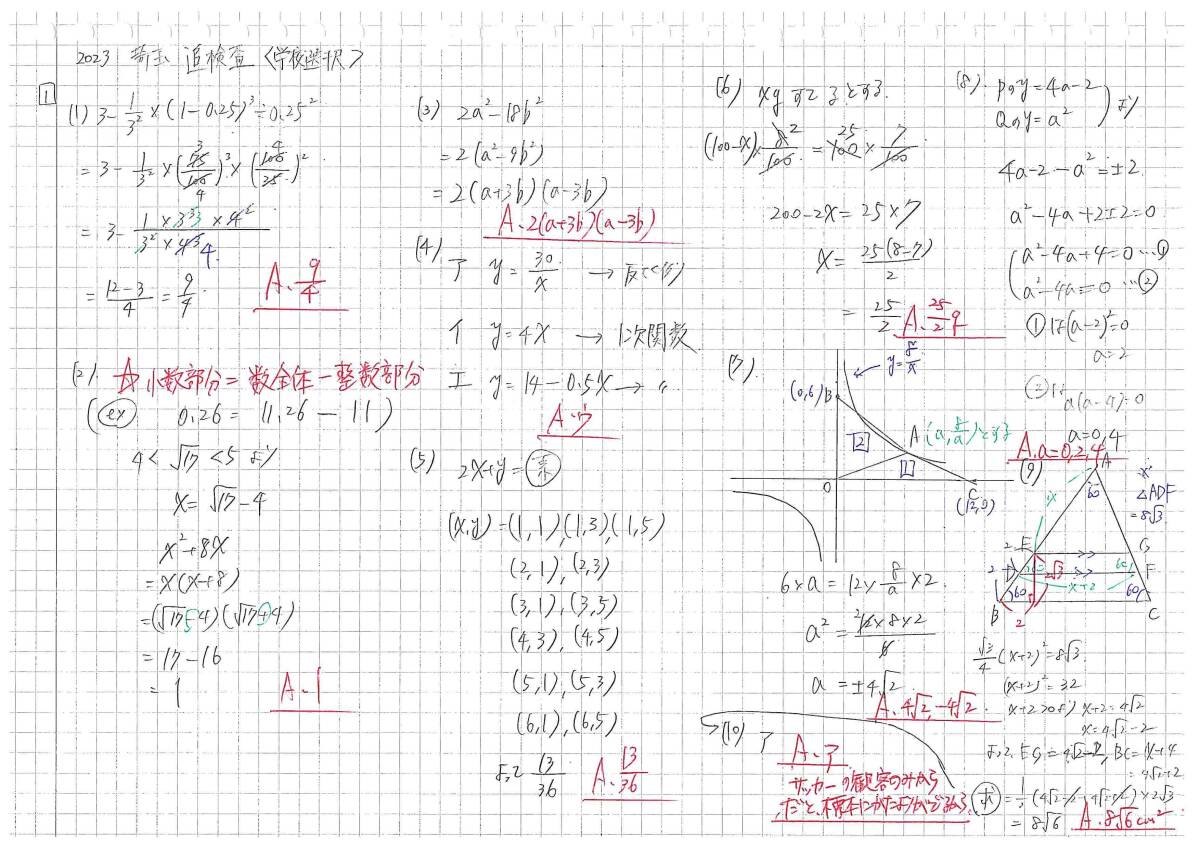 2023 埼玉 追検査〈学校選択〉
1
(1) 3-1/3²×(1-0.25)³÷0.25²
=3-1/3²×(75/100)³×(100/25)²
3 4 4
=3-(1×3³×4²)/(3²×4³)
4
=(12-3)/4=9/4
A. 9/4
(2). ☆小数部分=数全体-整数部分
(ex) 0.26=11.26-11)
4<√17<5より
x=√17-4
x²+8x
=x(x+8)
=(√17-4)(√17+4)
=17-16
=1
A. 1
(3) 2a²-18b²
=2(a²-9b²)
=2(a+3b)(a-3b)
A. 2(a+3b)(a-3b)
(4)
ア y=30/x →反比例
イ y=4x →1次関数
エ y=14-0.5x→ 〃
A. ウ
(5) 2x+y=素
(x,y)=(1,1),(1,3)(1,5)
(2,1),(2,3)
(3,1),(3,5)
(4,3),(4,5)
(5,1),(5,3)
(6,1),(6,5)
よって 13/36
A. 13/36
(6) xgすてるとする.
(100-x)×2/100=100×7/100
25
200-2x=25×7
x=25(8-7)/2
=25/2 A. 25/2 g
(7).
y=8/x
(0,6)B
A(a,8/a)とする
2
1
O
C
(12,0)
6×a=12×8/a×2
a²=(12×8×2)/6
2
a=±4√2
A. 4√2,-4√2
(8). Pのy=4a-2
Qのy=a² )より
4a-2-a²=±2
a²-4a+2±2=0
a²-4a+4=0…①
a²-4a=0…②
①は(a-2)²=0
a=2
②は
a(a-4)=0
a=0,4
A. a=0,2,4
(9)
A
60
x
△ADF
=8√3
2 E G
2 D 2√3 60 F
x+2
60 60
B 2 C
√3/4(x+2)²=8√3
(x+2)²=32
x+2>0より x+2=4√2
x=4√2-2
よって EG=4√2-2, BC=x+4
=4√2+2
求=1/2(4√2-2+4√2+2)×2√3
=8√6 A. 8√6cm²
(10) ア
A. ア
サッカーの観客のみから
だと、標本にかたよりがでるから